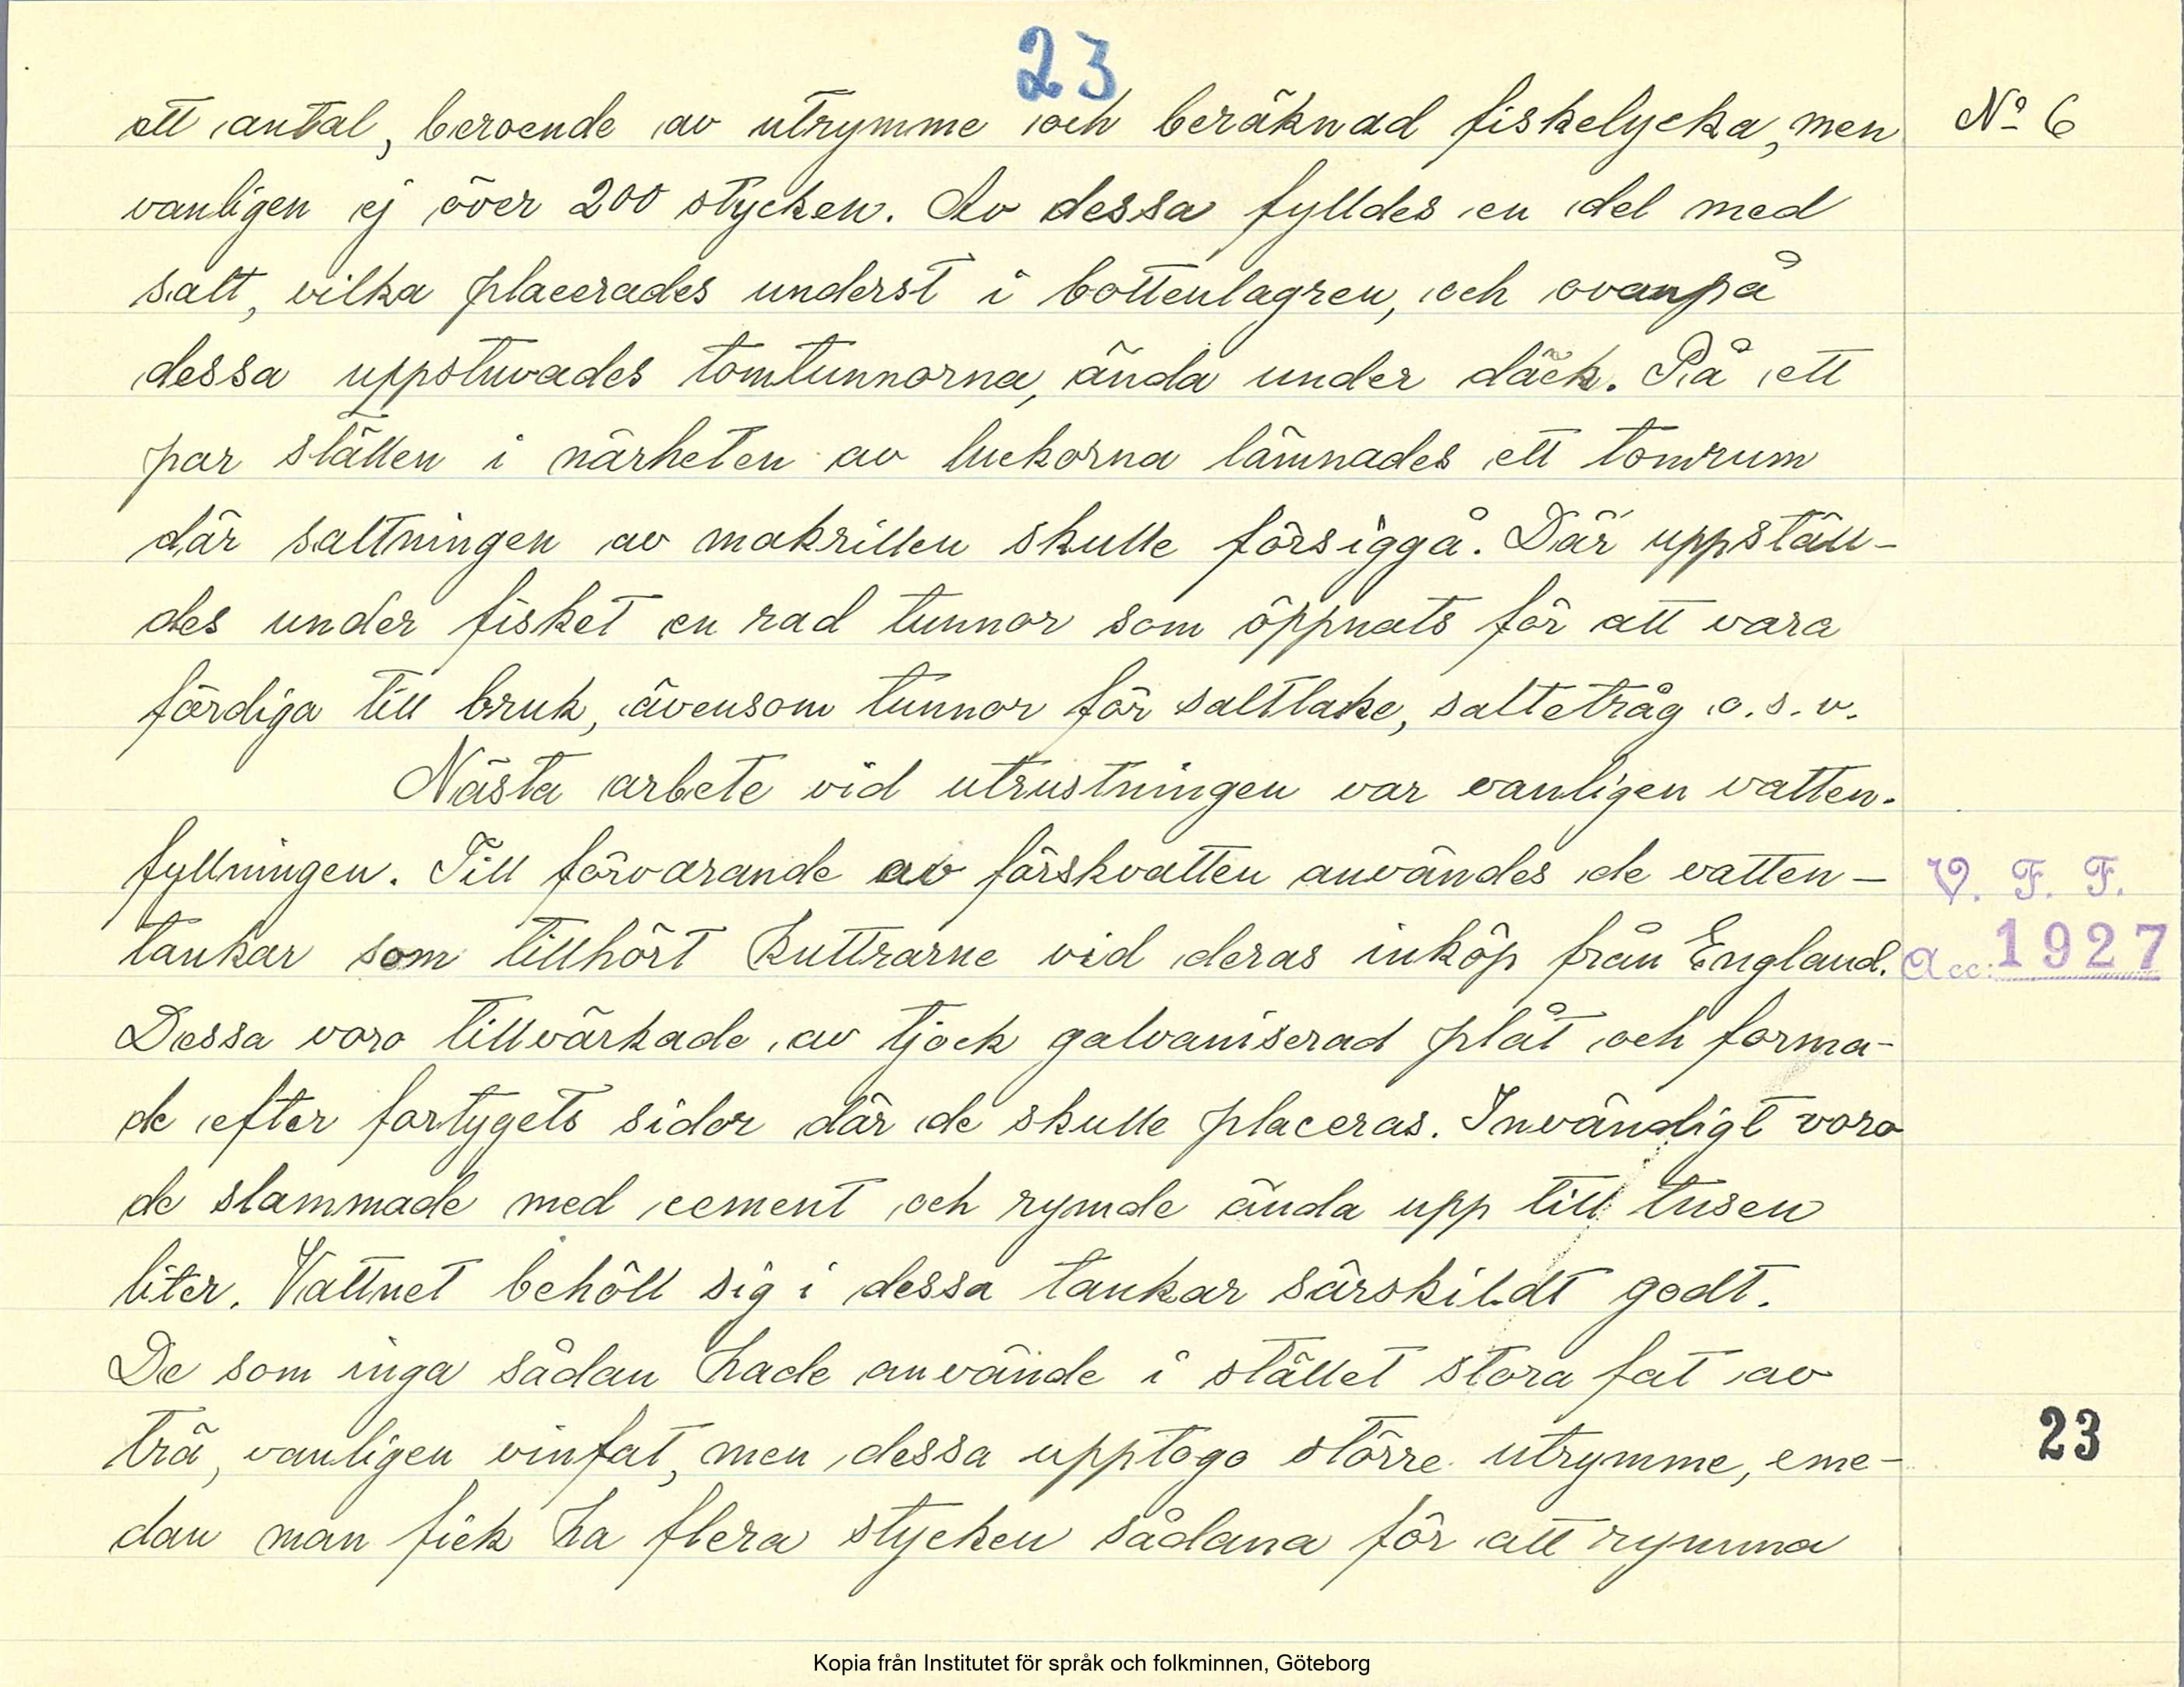 23
ett antal, beroende av utrymme och beräknad fiskelycka, men
No 6
vanligen ej över 200 stycken. Av dessa fylldes en del med
salt, vilka placerades underst i bottenlagren, och ovanpå
dessa uppstuvades tomtunnorna, ända under däck. På ett
par ställen i närheten av luckorna lämnades ett tomrum
där saltningen av makrillen skulle försiggå. Där uppställ-
des under fisket en rad tunnor som öppnats för att vara
färdiga till bruk, ävensom tunnor för saltlake, saltetråg o.s.v.
Nästa arbete vid utrustningen var vanligen vatten-
fyllningen. Till förvarande av färskvatten användes de vatten-
V. F. F.
tankar som tillhört kuttrarne vid deras inköp från England.
Acc: 1927
Dessa voro tillvärkade av tjock galvaniserad plåt och forma-
de efter fartygets sidor där de skulle placeras. Invändigt voro
de slammade med cement och rymde ända upp till tusen
liter. Vattnet behöll sig i dessa tankar särskildt godt.
De som inga sådan hade använde i stället stora fat av
trä, vanligen vinfat, men dessa upptogo större utrymme, eme-
23
dan man fick ha flera stycken sådana för att rymma
Kopia från Institutet för språk och folkminnen, Göteborg